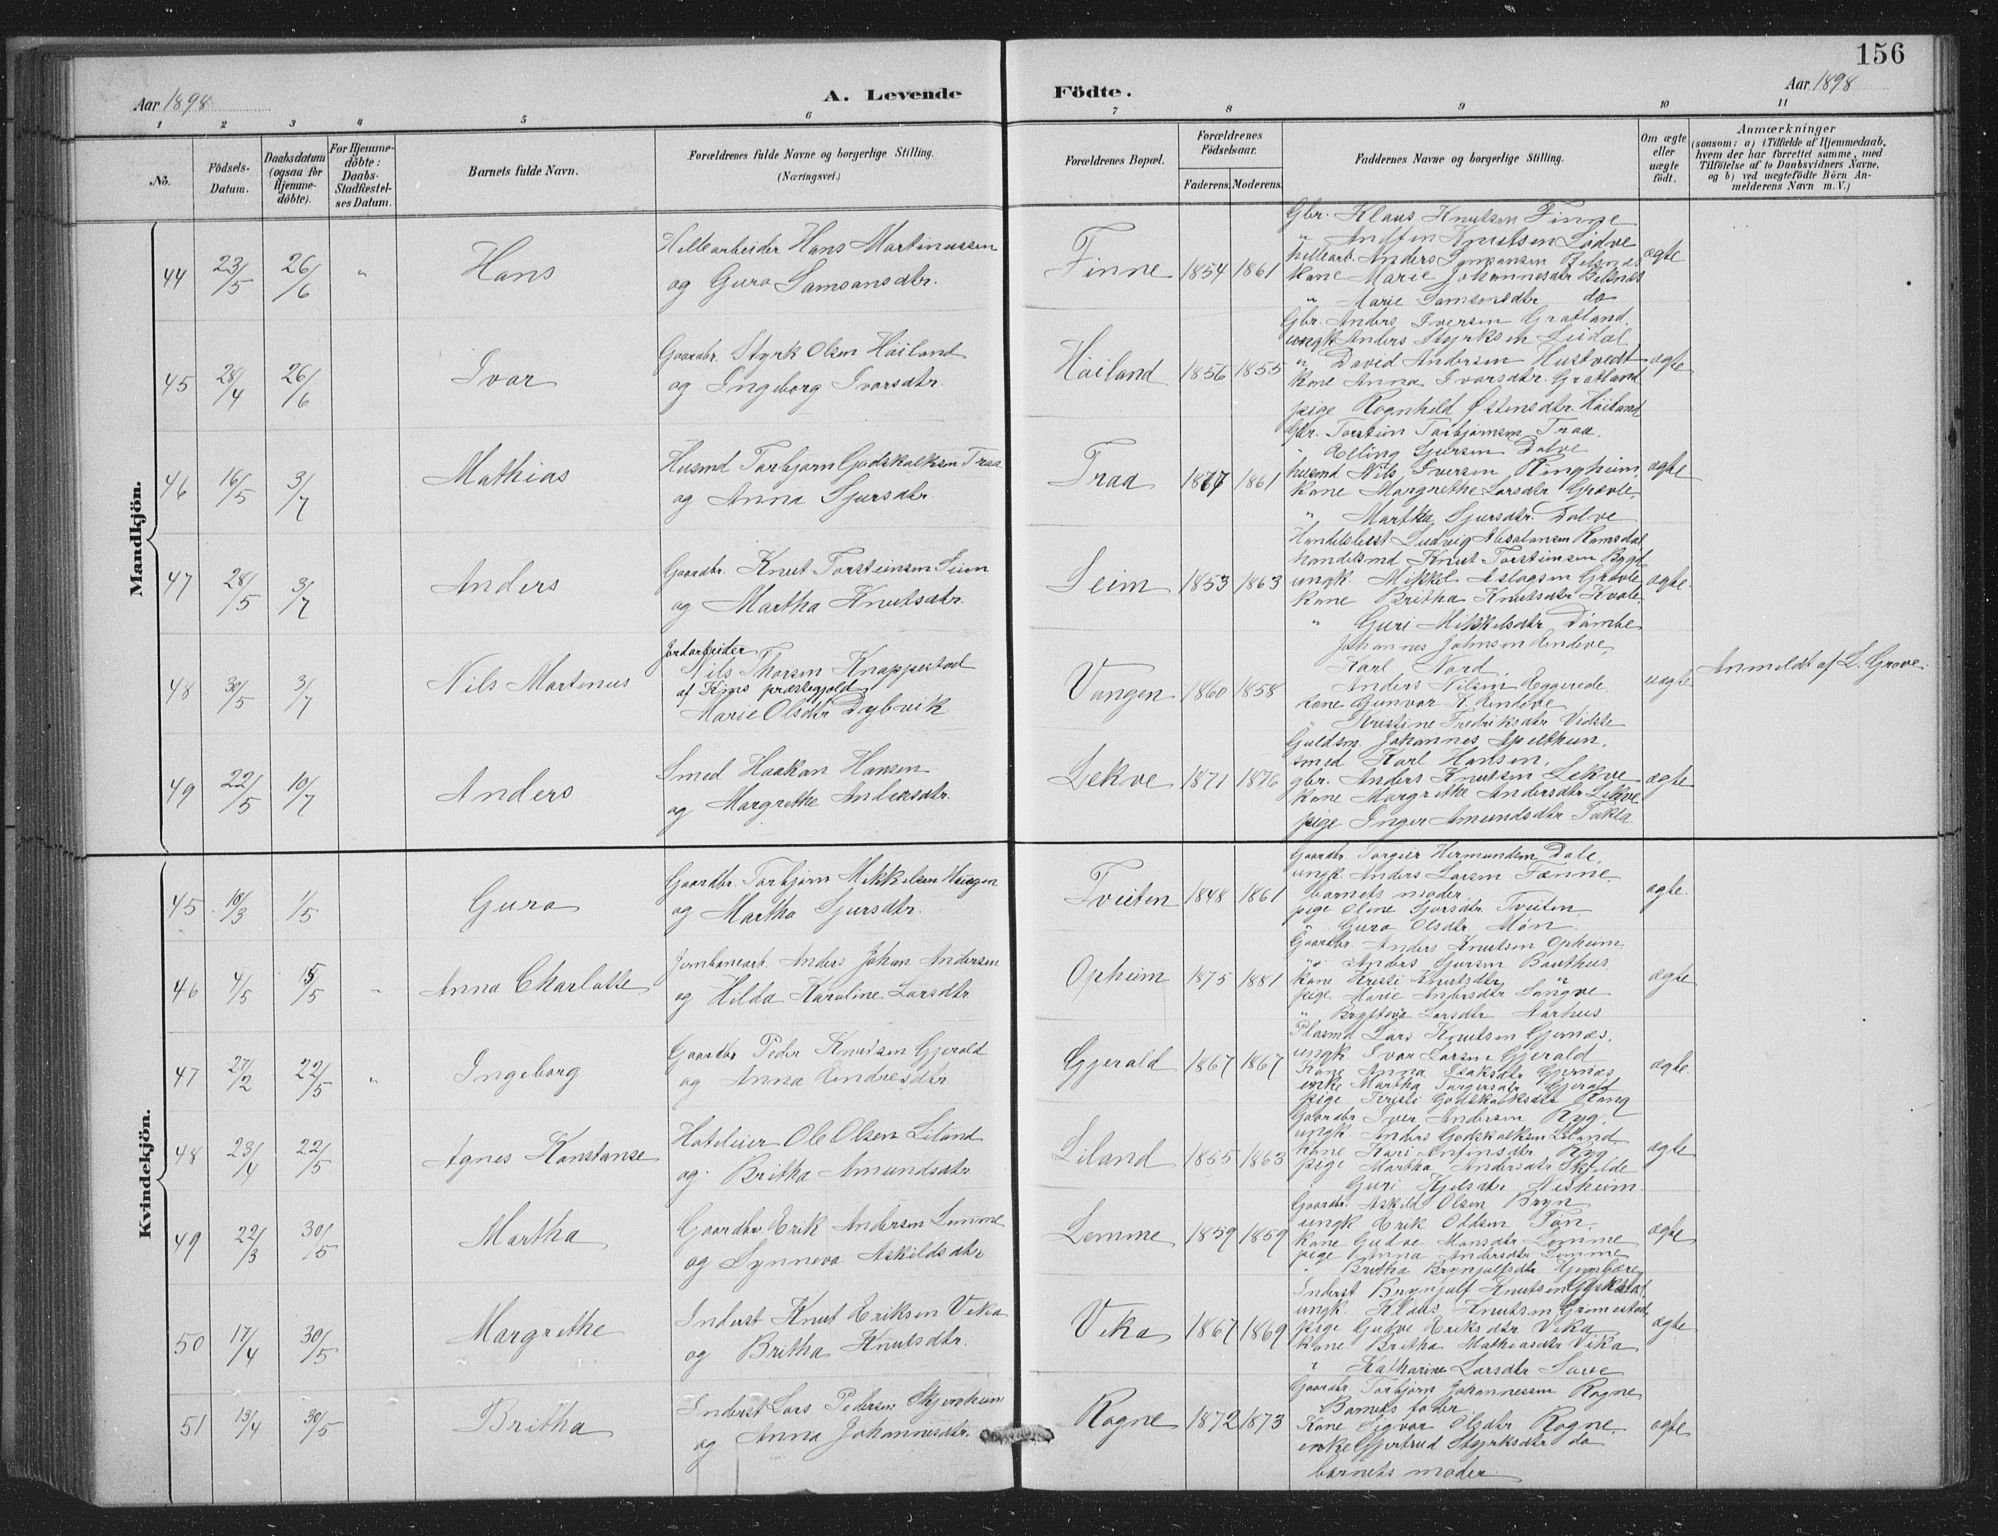 156
Aar 1898
A. Levende
Födte.
Aar 1898
1 2 3 4 5 6 7 8 9 10 11
No.
Födsels-
Datum.
Daabsdatum
(ogsaa for
Hjemme-
döbte).
For Hjemme-
döbte:
Daabs-
Stadfæstel-
ses Datum.
Barnets fulde Navn.
Forældrenes fulde Navne og borgerlige Stilling.
(Næringsvei.)
Forældrenes Bopæl.
Forældrenes
Födselsaar.
Faderens. Moderens.
Faddernes Navne og borgerlige Stilling.
Om ægte
eller
uægte
født.
Anmærkninger
(saasom: a) i Tilfælde af Hjemmedaab,
hvem der har forrettet samme, med
Tilföielse af to Daabsvidners Navne,
og b) ved uægtefödte Börn An-
melderens Navn m. V.)
Mandkjön.
44 23/5 26/6 " Hans
Hellearbeider Hans Martinussen
og Guro Samsonsdtr.
Finne 1854 1861
Gbr. Klaus Knutsen Finne
" Andfin Knutsen Lødve
hellearb. Anders Samsonsen
kone Marie Johannesdtr
" Marie Samsonsdtr do
ægte
45 28/4 26/6 Ivar
Gaardbr. Styrk Olsen Høiland
og Ingeborg Ivarsdtr.
Høiland 1856 1855
Gbr. Anders Iversen Gratland.
ungk Anders Styrksen Leidal
" David Andersen Hustvedt
Kone Anna Ivarsdtr. Gratland
pige Ragnhild Østensdtr. Høiland
ægte
46 16/5 3/7 Mathias
Husmd Torbjørn Godskalksen Traa
og Anna Sjursdtr
Traa 1861
Gbr. Torstein Torbjørnsen Traa,
" Elling Sjursen Dolve
husmd Nils Iversen Ringheim,
Kone Margrethe Larsdtr Grøvle,
" Martha Sjursdtr. Dolve
ægte
47 28/5 3/7 Anders
Gaardbr. Knut Torsteinsen Seim
og Martha Knutsdtr.
Seim 1853 1863
Handelsbest Ludvig Absalonsen Ramsdal
handelsmd Knut Torsteinsen Bygd
ungk. Mikkel Aslagsen Grøvle
kone Britha Knutsdtr Kvale,
" Guri Mikkelsdtr Dømbe
ægte
48 30/5 3/7 Nils Martinus
Jordarbeider
Nils Thorsen Knappestad
af Kins præstegjeld
Marie Olsdtr Dybvik
Vangen 1860 1858
Johannes Johnsen Rendeve,
Karl Nord,
Anders Nilsen Eggerede
kone Gunvor K. Rendeve
" Kristine Fredriksdtr Vidste
uægte
Anmeldt af L. Grove.
49 22/5 10/7 Anders
Smed Haakon Hansen
og Margrethe Andersdtr.
Lekve 1871 1876
Guldsm. Johannes Spilthun,
smed Karl Hansen,
gbr. Anders Knutsen Lekve
Kone Margrethe Andersdtr Lekve
pige Inger Amundsdtr Takla
ægte
Kvindekjön.
45 10/3 1/5 Guro
Gaardbr. Torbjørn Mikkelsen Haugen
og Martha Sjursdtr.
Tveiten 1848 1861
Gaardbr. Torgier Hermundsen Dale,
ungk. Anders Larsen Fænne,
barnets moder,
pige Oline Sjursdtr. Tveiten,
" Guro Olsdtr. Møn.
ægte.
46 4/5 15/5 " Anna Charlotte
Jernbanearb. Anders Johan Andersen
og Hilda Karoline Larsdtr
Opheim 1875 1881
Gaardbr. Anders Knutsen Opheim.
" Anders Sjursen Bauthus
Kone Kristi Knutsdtr "
pige Marie Andersdtr Songve
" Brytteva Larsdtr Aarhus
ægte
47 27/2 22/5 " Ingeborg
Gaardbr Peder Knutsen Gjerald
og Anna Endresdtr
Gjerald 1867 1867
Plasmd Lars Knutsen Gjernæs,
ungk. Ivar Larsen Gjerald
Kone Anna Isaksdtr Gjernæs
enke Martha Torgersdtr Gjerald
pige Kristi Godskalksdtr Rong
ægte
48 23/4 22/5 Agnes Konstanse
Hoteleier Ole Olsen Liland
og Britha Amundsdtr
Liland 1855 1863
Gaardbr Iver Andersen Ryg,
ungk. Anders Godskalksen Liland
kone Kari Anfinsdtr Ryg
pige Martha Andersdtr Skjelde
" Guri Kjelsdtr Nesheim
ægte
49 22/3 30/5 Martha
Gaardbr Erik Andersen Lemme
og Synneva Askildsdtr
Lemme 1859 1859
Gaardbr. Askild Olsen Bryn
ungk Erik Oddsen Tøn,
Kone Gudve Monsdtr Lemme
pige Anna Andersdtr Lemme
" Britha Brynjulfsdtr
ægte
50 17/4 30/5 Margrethe
Inderst Knut Eriksen Veka
og Britha Knutsdtr.
Veka 1867 1869
Inderst Brynjulf Knutsen
ungk. Klaus Knutsen Grimestad,
pige Gudve Eriksdtr Veka
kone Britha Mathiasdtr Veka
" Katharine Larsdtr Saue
ægte
51 13/4 30/5 Britha
Inderst Lars Pedersen Skjerheim
og Anna Johannesdtr.
Rogne 1872 1873
Gaardbr Torbjørn Johannessen Rogne
Barnets fader
Kone Sigvor Olsdtr Rogne,
enke Gjertrud Styrksdtr do
barnets moder.
ægte